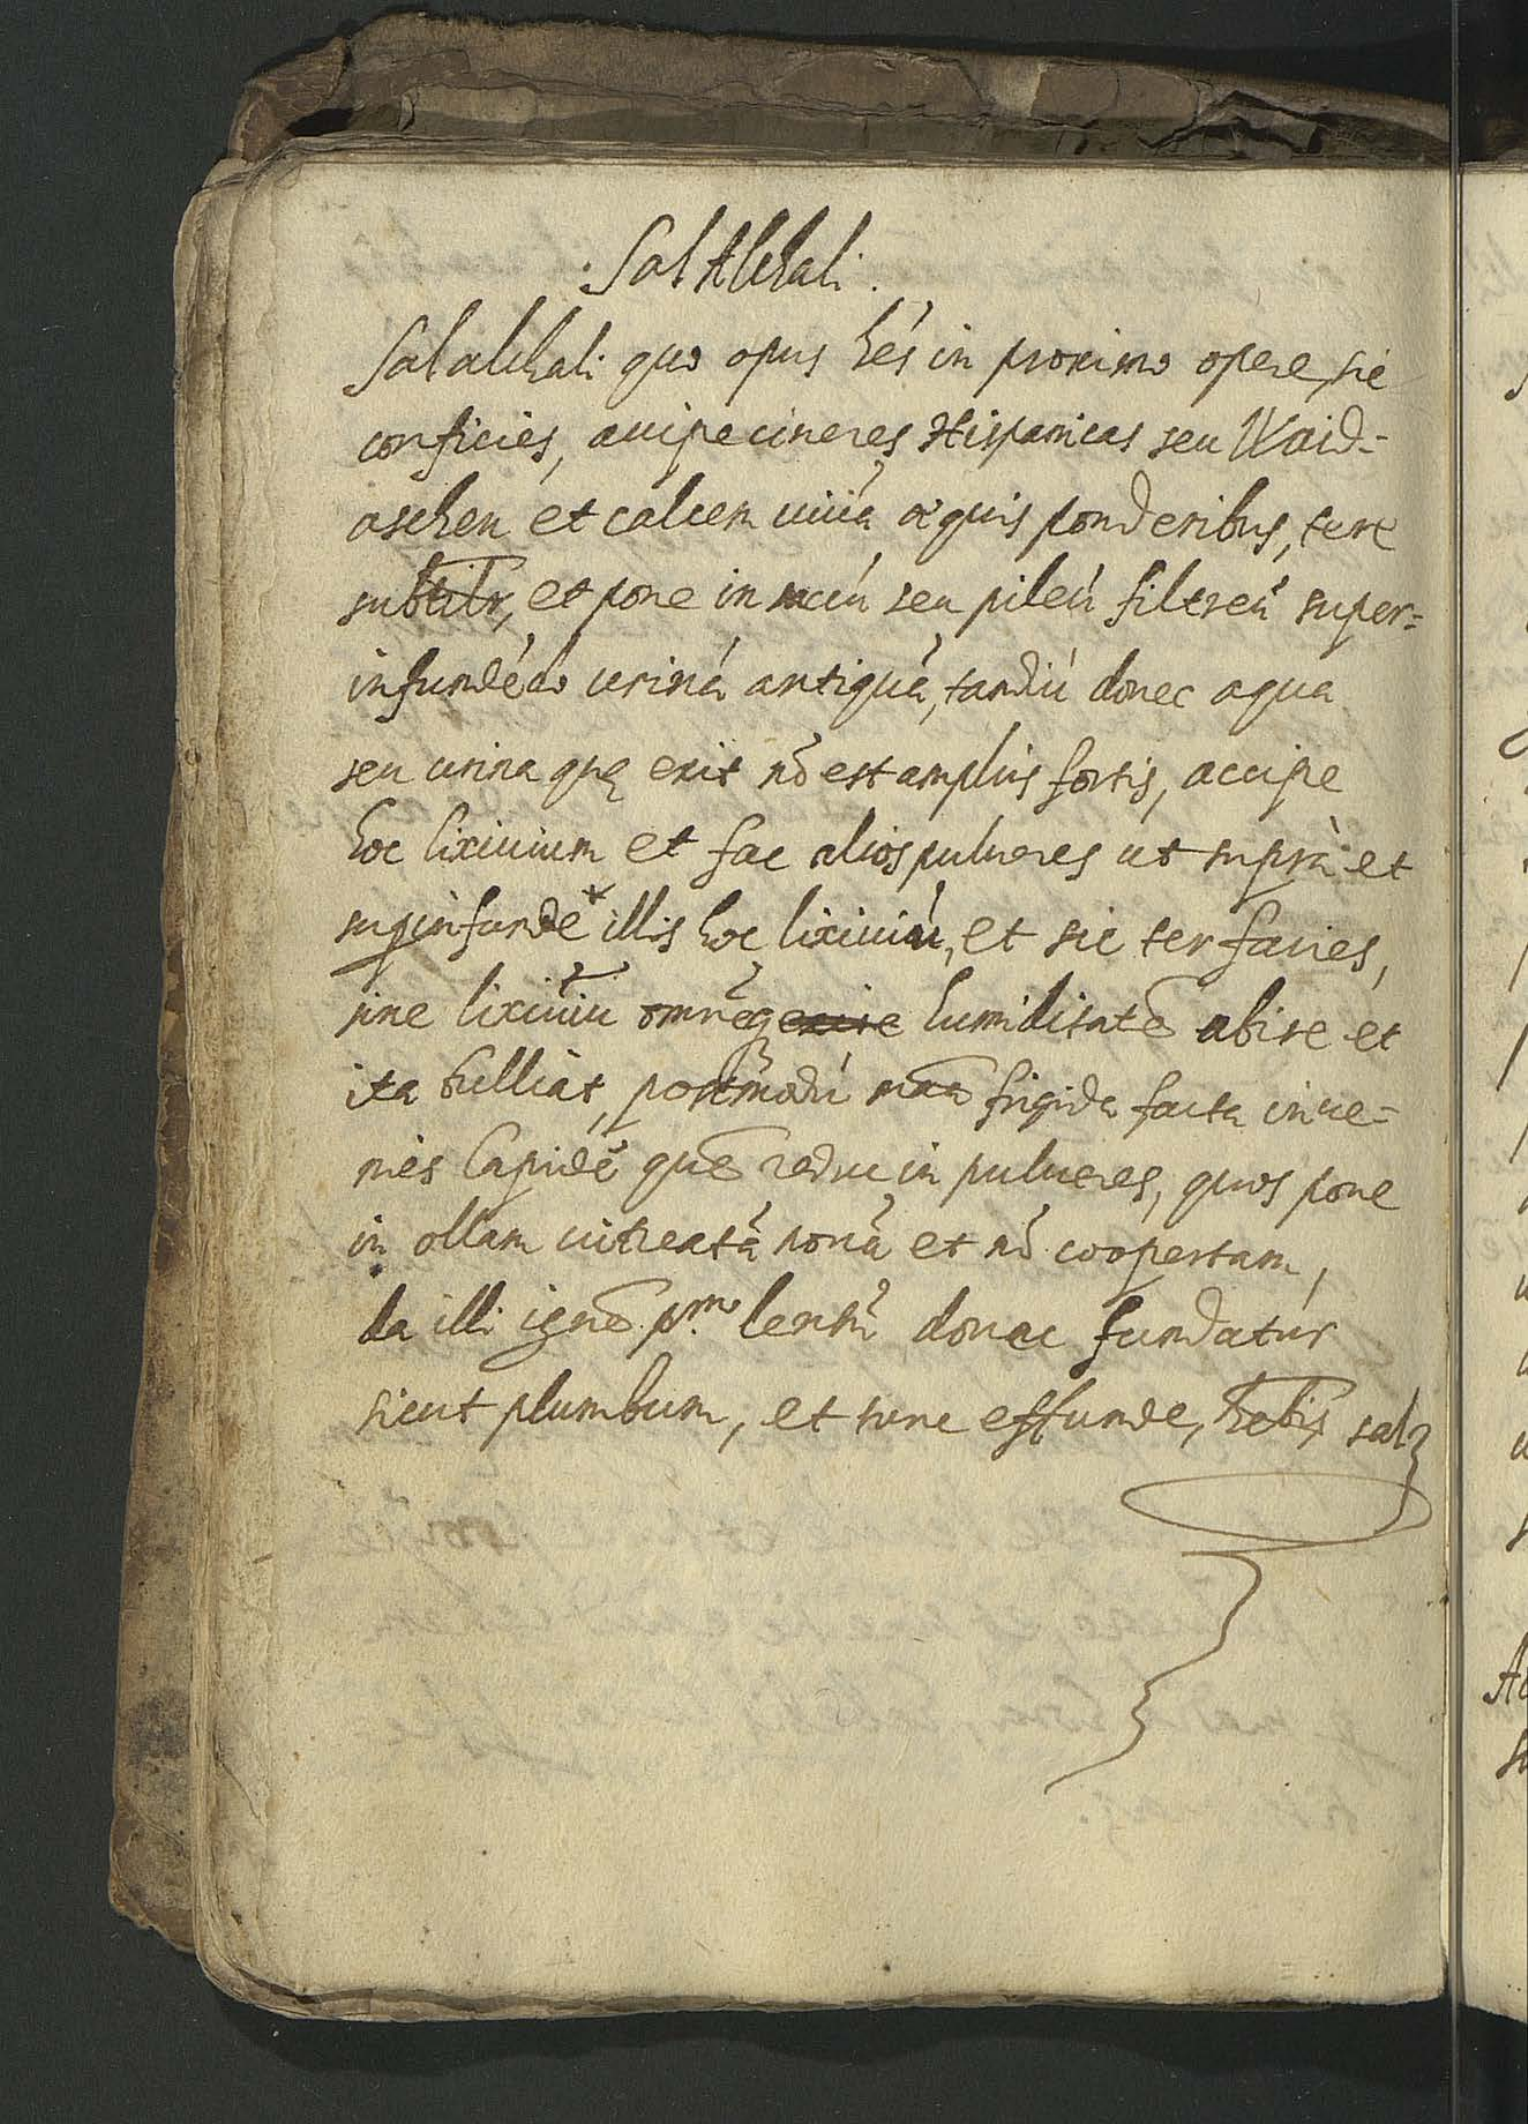 Sal Alchali.
Sal alchali quo opus hēs in proximo opere, sic
conficies, accipe cineres Hispanicas seu Waid=
aschen et calcem uiuā æquis ponderibus, tere
subtilr, et pone in seu pileū filtreū super=
infundēdo urinā antiquā, tamdiū donec aqua
seu urina quę exit nō est amplius fortis, accipe
hoc lixiuium et fac alios pulueres ut suprà et
supinfunde illis hoc lixiuiū, et sic ter facies,
sine lixiuiū omnēq humiditatē abire et
ita bulliat, postmodū frigida facta inue=
nies lapidē quē reduc in pulueres, quos pone
in ollam uitreatā nouā et nō coopertam,
da illi ignē p.mo lentū donec fundatur
sicut plumbum, et tunc effunde, hebis sal